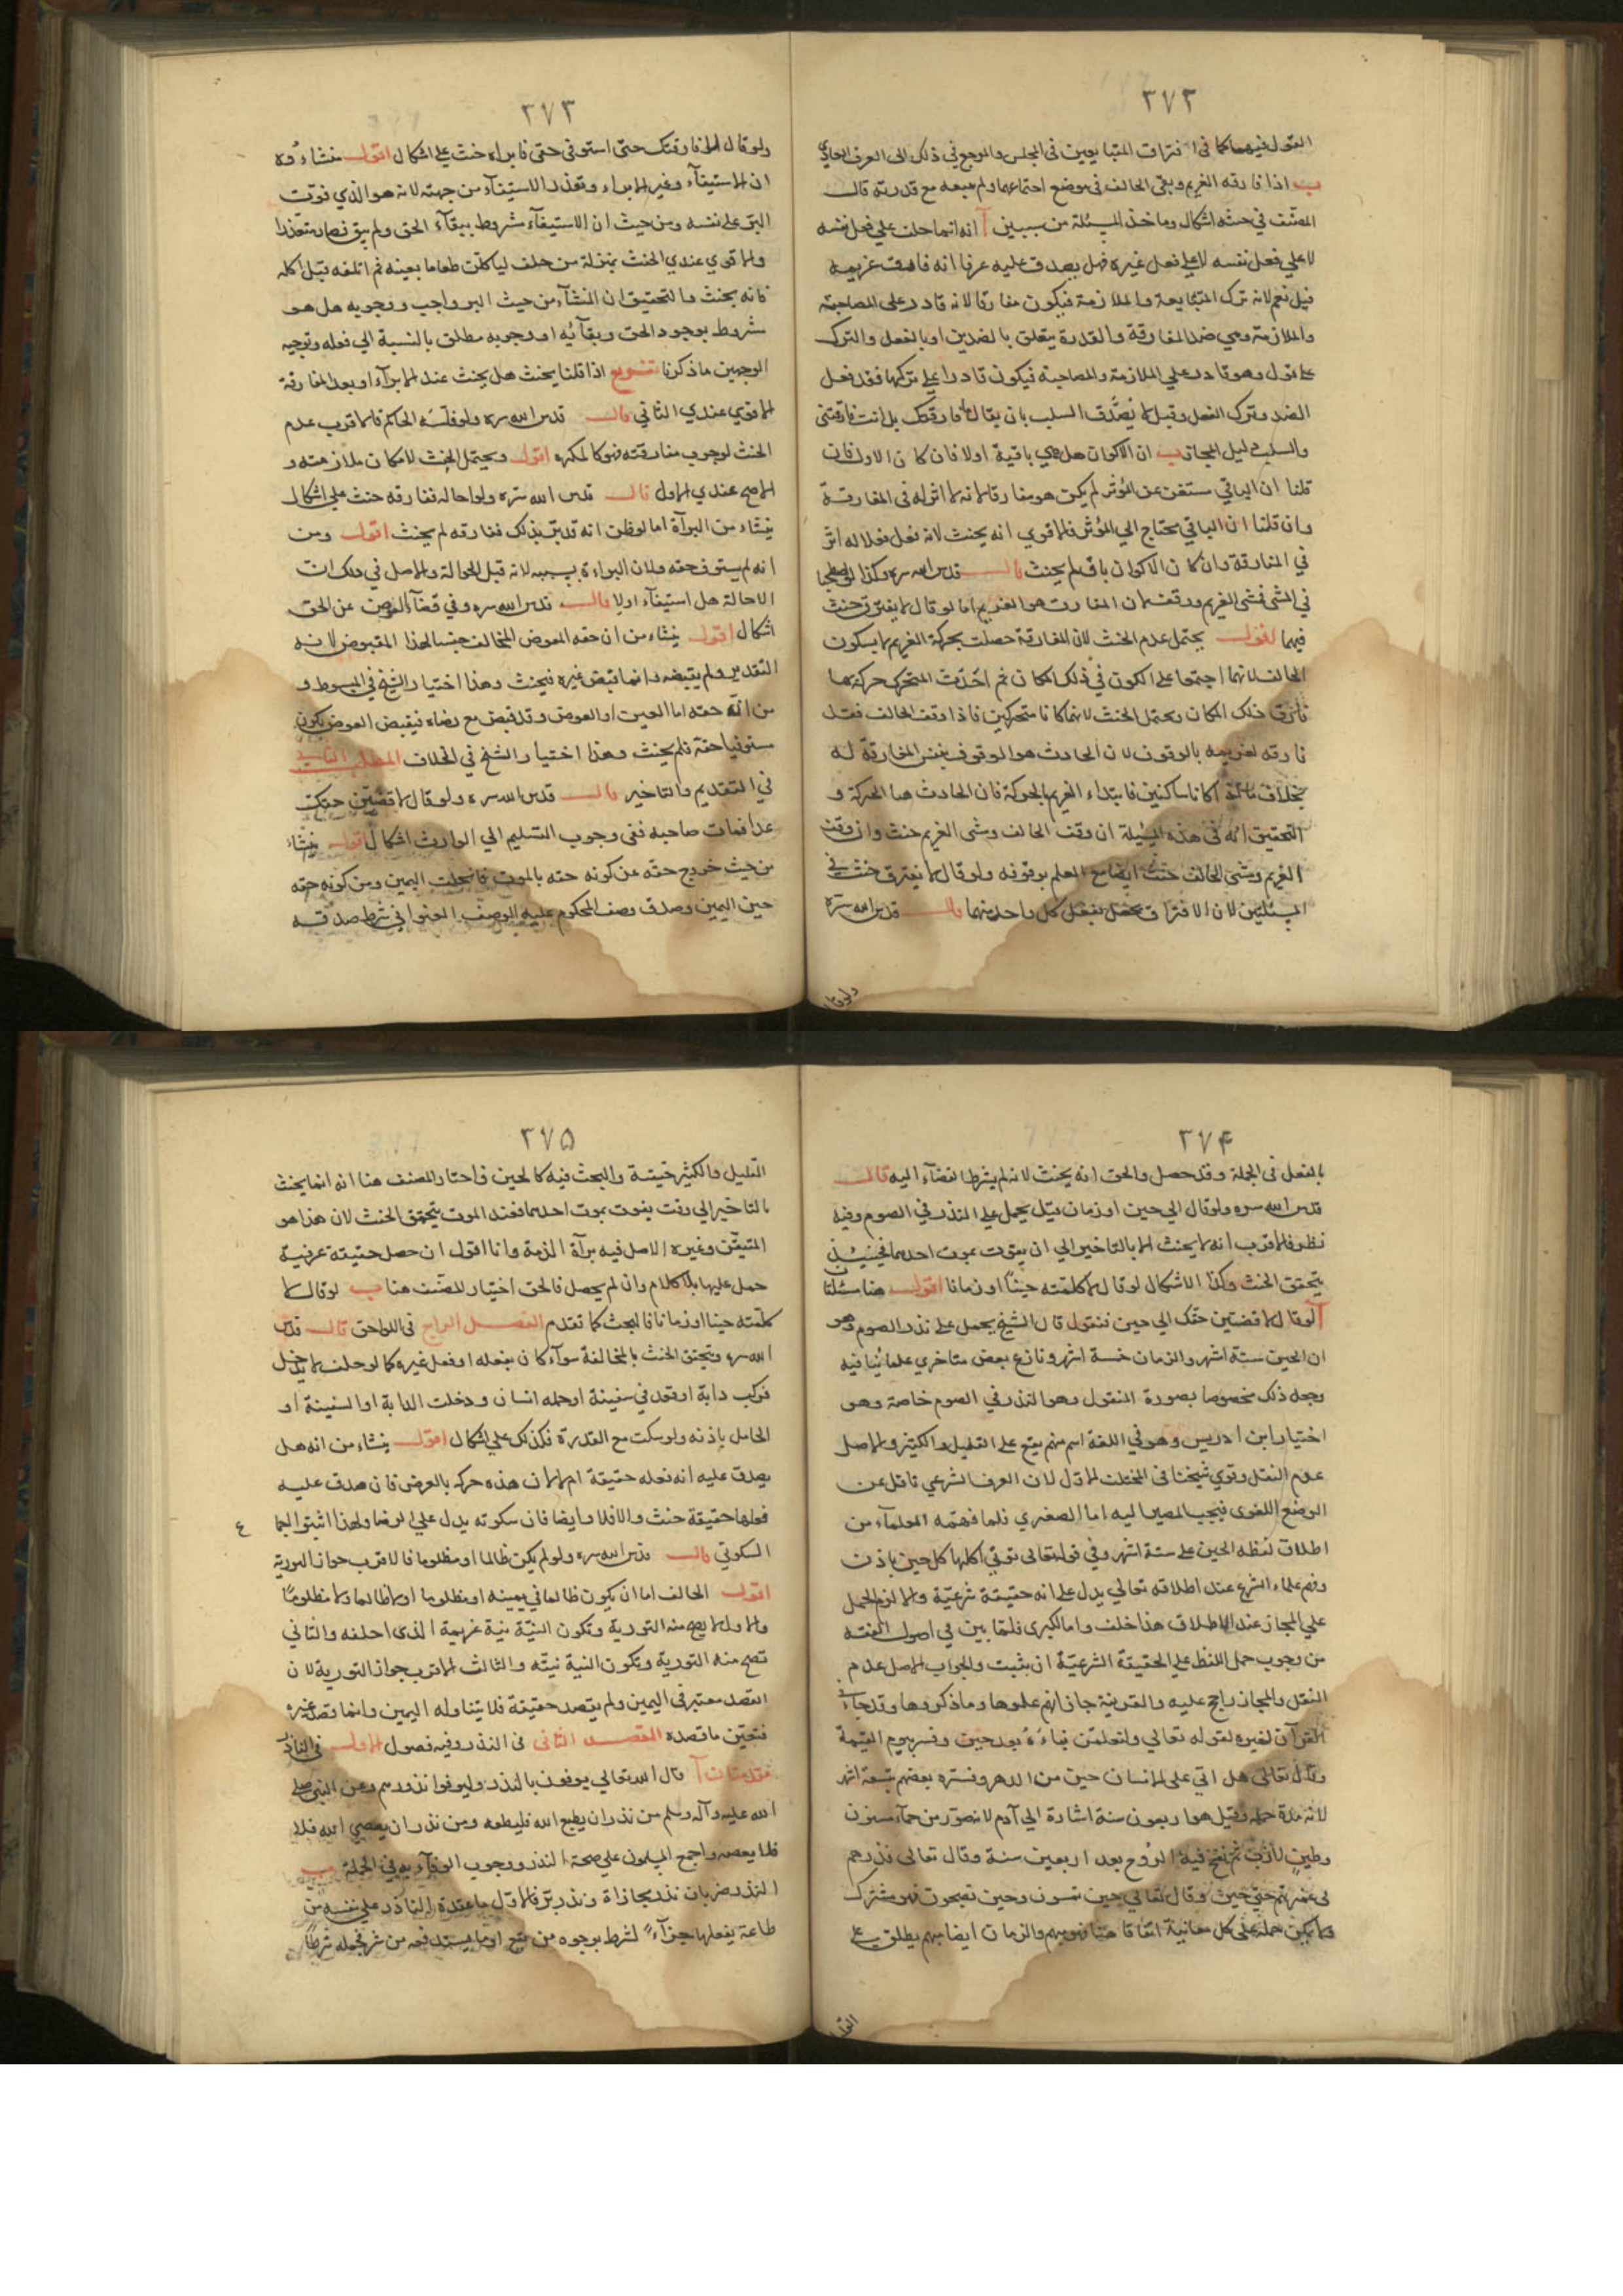 ٢٧٢
القول فيهما كما في افتراق المتبايعين في المجلس والمرجع في ذلك الى العرف العادي
ب اذا فارقه الغريم وبقي الحالف في موضع اجتماعهما ولم يتبعه مع قدرته قال
المصنف في حنثه اشكال وماخذ المسئلة من سببين آ انه انما حلف علي فعل نفسه
لا علي فعل غيره فهل يصدق عليه عرفا انه فارق غريمه
قيل نعم لانه ترك المتابعة والملازمة فيكون مفارقا لانه قادر على المصاحبة
والملازمة وهي ضد المفارقة والقدرة يتعلق بالضدين او بالفعل والترك
على قول وهو قادر علي الملازمة والمصاحبة فيكون قادرا على تركها فقد فعل
الضد وترك الفعل وقيل لا يصدق السلب بان يقال ما فارقتك بل انت فارقتني
والسلب دليل المجاز ب ان الاكوان هل هي باقية اولا فان كان الاول فان
قلنا ان الباقي مستغن عن المؤثر لم يكن هو مفارقا لانه لا اثر له في المفارقة
وان قلنا ان الباقي يحتاج الي المؤثر فالاقوي انه يحنث لانه فعل فعلا له اثر
في المفارقة وان كان الاكوان باق لم يحنث قال قدس الله سره وكذا لو اصطحبا
في المشي فمشى الغريم ووقف لان المفارق هو الغريم اما لو قال لا نفترق حنث
فيهما اقول يحتمل عدم الحنث لان المفارقة حصلت بحركة الغريم لا بسكون
الحالف لانهما اجتمعا على الكون في ذلك المكان ثم احدثت المتحرك حركة بها
فارق ذلك المكان ويحتمل الحنث لانهما كانا متحركين فاذا وقف الحالف فقد
فارقه لغريمه بالوقوف لان الحادث هو الوقوف بغنى المفارقة له
بخلاف ما اذا كانا ساكنين فابتداء الغريم بالحركة فان الحادث هنا الحركة و
التحقيق انه في هذه المسئلة ان وقف الحالف ومشى الغريم حنث وان وقف
الغريم ومشى الحالف حنث ايضا مع العلم بوقوفه ولو قال لا نفترق حنث في
المسئلتين لان الافتراق يحصل بفعل كل واحد منهما قال قدس الله سره
ولو قال
٢٧٣
ولو قال لا فارقتك حتى استوفي حقي فابراه حنث على اشكال اقول منشاءه
ان الاستيفاء وغير الابراء وتعذر الاستيفاء من جهته لانه هو الذي فوت
البر على نفسه ومن حيث ان الاستيفاء مشروط ببقاء الحق ولم يبق فصار متعذرا
والاقوي عندي الحنث بمنزلة من حلف لياكلن طعاما بعينه ثم اتلفه قبل اكله
فانه يحنث والتحقيق ان المنشاء من حيث البر واجب ووجوبه هل هو
مشروط بوجود الحق وبقائه او وجوبه مطلق بالنسبة الي فعله وتوجيه
الوجهين ما ذكرنا تفريع اذا قلنا يحنث هل يحنث عند الابراء او بعد المفارقة
الاقوي عندي الثاني قال قدس الله سره ولو فلسه الحاكم فالاقرب عدم
الحنث لوجوب مفارقته فهو كالمكره اقول ويحتمل الحنث لامكان ملازمته و
الاصح عندي الاول قال قدس الله سره ولو احاله ففارقه حنث على اشكال
ينشاء من البراءة اما لو ظن انه قد بر بذلك ففارقه لم يحنث اقول ومن
انه لم يستوف حقه ولان البراءة بسببه لانه قبل الحوالة والاصل في ذلك ان
الاحالة هل استيفاء اولا قال قدس الله سره وفي قضاء العوض عن الحق
اشكال اقول ينشاء من ان حقه العوض المخالف جنسا لهذا المقبوض لا به
التقدير ولم يقبضه وانما قبض غيره فيحنث وهذا اختيار الشيخ في المبسوط و
من ان حقه اما العين او العوض وقد قبض مع رضاه فيقبض العوض يكون
مستوفيا حقه فلم يحنث وهذا اختيار الشيخ في الخلاف المطلب التاسع
في التقديم والتاخير قال قدس الله سره ولو قال لاقضين حقك
غدا فمات صاحبه ففي وجوب التسليم الي الوارث اشكال اقول ينشاء
من حيث خروج حقه عن كونه حقه بالموت فانحلت اليمين ومن كونه حقه
حين اليمين وصدق وصف المحكوم عليه بالوصف العنواني شرط صدقه
٢٧۴
بالفعل في الجملة وقد حصل والحق انه يحنث لانه لم يشرط القضاء اليه قال
قدس الله سره ولو قال الي حين او زمان قيل يحمل على النذر في الصوم وفيه
نظر فالاقرب انه لا يحنث الا بالتاخير الي ان يفوت بموت احدهما فحينئذ
يتحقق الحنث وكذا الاشكال لو قال لا كلمته حينا او زمانا اقول هنا مسئلتان
آ لو قال لاقضين حقك الي حين فنقول قال الشيخ يحمل على نذر الصوم وهو
ان الحين ستة اشهر والزمان خمسة اشهر ونازع بعض متاخري علمائنا فيه
وجعل ذلك مخصوصا بصورة المنقول وهو النذر في الصوم خاصة وهو
اختيار ابن ادريس وهو في اللغة اسم مبهم يقع على القليل والكثير والاصل
عدم النقل وقوي شيخنا في المختلف الاول لان العرف الشرعي ناقل عن
الوضع اللغوى فيجب المصير اليه اما الصغري فلما فهمه العلماء من
اطلاق لفظه الحين على ستة اشهر وفي قوله تعالى تؤتي اكلها كل حين باذن
وفهم علماء الشرع عند اطلاقه تعالي يدل على انه حقيقة شرعية والا لزم الحمل
علي المجاز عند الاطلاق هذا خلف واما الكبرى فلما بين في اصول الفقه
من وجوب حمل اللفظ علي الحقيقة الشرعية ان يثبت والجواب الاصل عدم
النقل والمجاز راجح عليه والقرينة جاز انهم علموها وما ذكروها وقد جاء في
القرآن لغيره لقوله تعالي ولتعلمن نباءه بعد حين وفسر بيوم القيمة
وقال تعالى هل اتي على الانسان حين من الدهر وفسره بعضهم بتسعة اشهر
لانه مدة حمله وقيل هو اربعون سنة اشارة الي آدم لانه صور من حماء مسنون
وطين لازب ثم نفخ فيه الروح بعد اربعين سنة وقال تعالى فذرهم
في غمرتهم حتى حين وقال تعالي حين تمسون وحين تصبحون فهو مشترك
ولا يمكن حمله على كل معانيه اتفاقا هنا فهو مبهم والزمان ايضا مبهم يطلق على
القليل
٢٧۵
القليل والكثير حقيقة والبحث فيه كالحين واختار المصنف هنا انه انما يحنث
بالتاخير الي وقت يفوت بموت احدهما فعند الموت يتحقق الحنث لان هذا هو
المتيقن وغيره الاصل فيه براءة الذمة وانا اقول ان حصل حقيقة عرفية
حمل عليها الكلام وان لم يحصل فالحق اختيار المصنف هنا ب لو قال لا
كلمته حينا او زمانا فالبحث كما تقدم الفصل الرابع في اللواحق قال قدس
الله سره ويتحقق الحنث بالمخالفة سواء كان بفعله او فعل غيره كما لو حلف لا يدخل
فركب دابة او قعد في سفينة او حمله انسان ودخلت الدابة او السفينة او
الحامل باذنه ولو سكت مع القدرة فكذلك على اشكال اقول ينشاء من انه هل
يصدق عليه انه فعله حقيقة ام لا لان هذه حركة بالعرض فان صدق عليه
فعلها حقيقة حنث والا فلا وايضا فان سكوته يدل علي الرضا ولهذا اثبتوا الاجماع
السكوتي قال قدس الله سره ولو لم يكن ظالما او مظلوما فالاقرب جواز التورية
اقول الحالف اما ان يكون ظالما في يمينه او مظلوما او لا ظالما ولا مظلوما
والاول لا يصح منه التورية وتكون النية نية غريمه الذي احلفه والثاني
تصح منه التورية وتكون النية نيته والثالث الاقرب جواز التورية لان
القصد معتبر في اليمين ولم يقصد حقيقة فلا يتناوله اليمين وانما قصد غيره
فتعين ما قصده المقصد الثاني في النذر وفيه فصول الاول في الناذر
مقدمتان آ قال الله تعالي يوفون بالنذر وليوفوا نذورهم وعن النبي صلى
الله عليه وآله وسلم من نذر ان يطيع الله فليطعه ومن نذر ان يعصي الله فلا
فلا يعصه واجمع المسلمون علي صحة النذر ووجوب الوفاء به في الجملة ب
النذر ضربان نذر مجازاة ونذر بر فالاول ما عقده الناذر علي نفسه من
طاعة يفعلها جزاء لشرط يوجوه من نفع او ما يستدفعه من شر فجعله شرطا